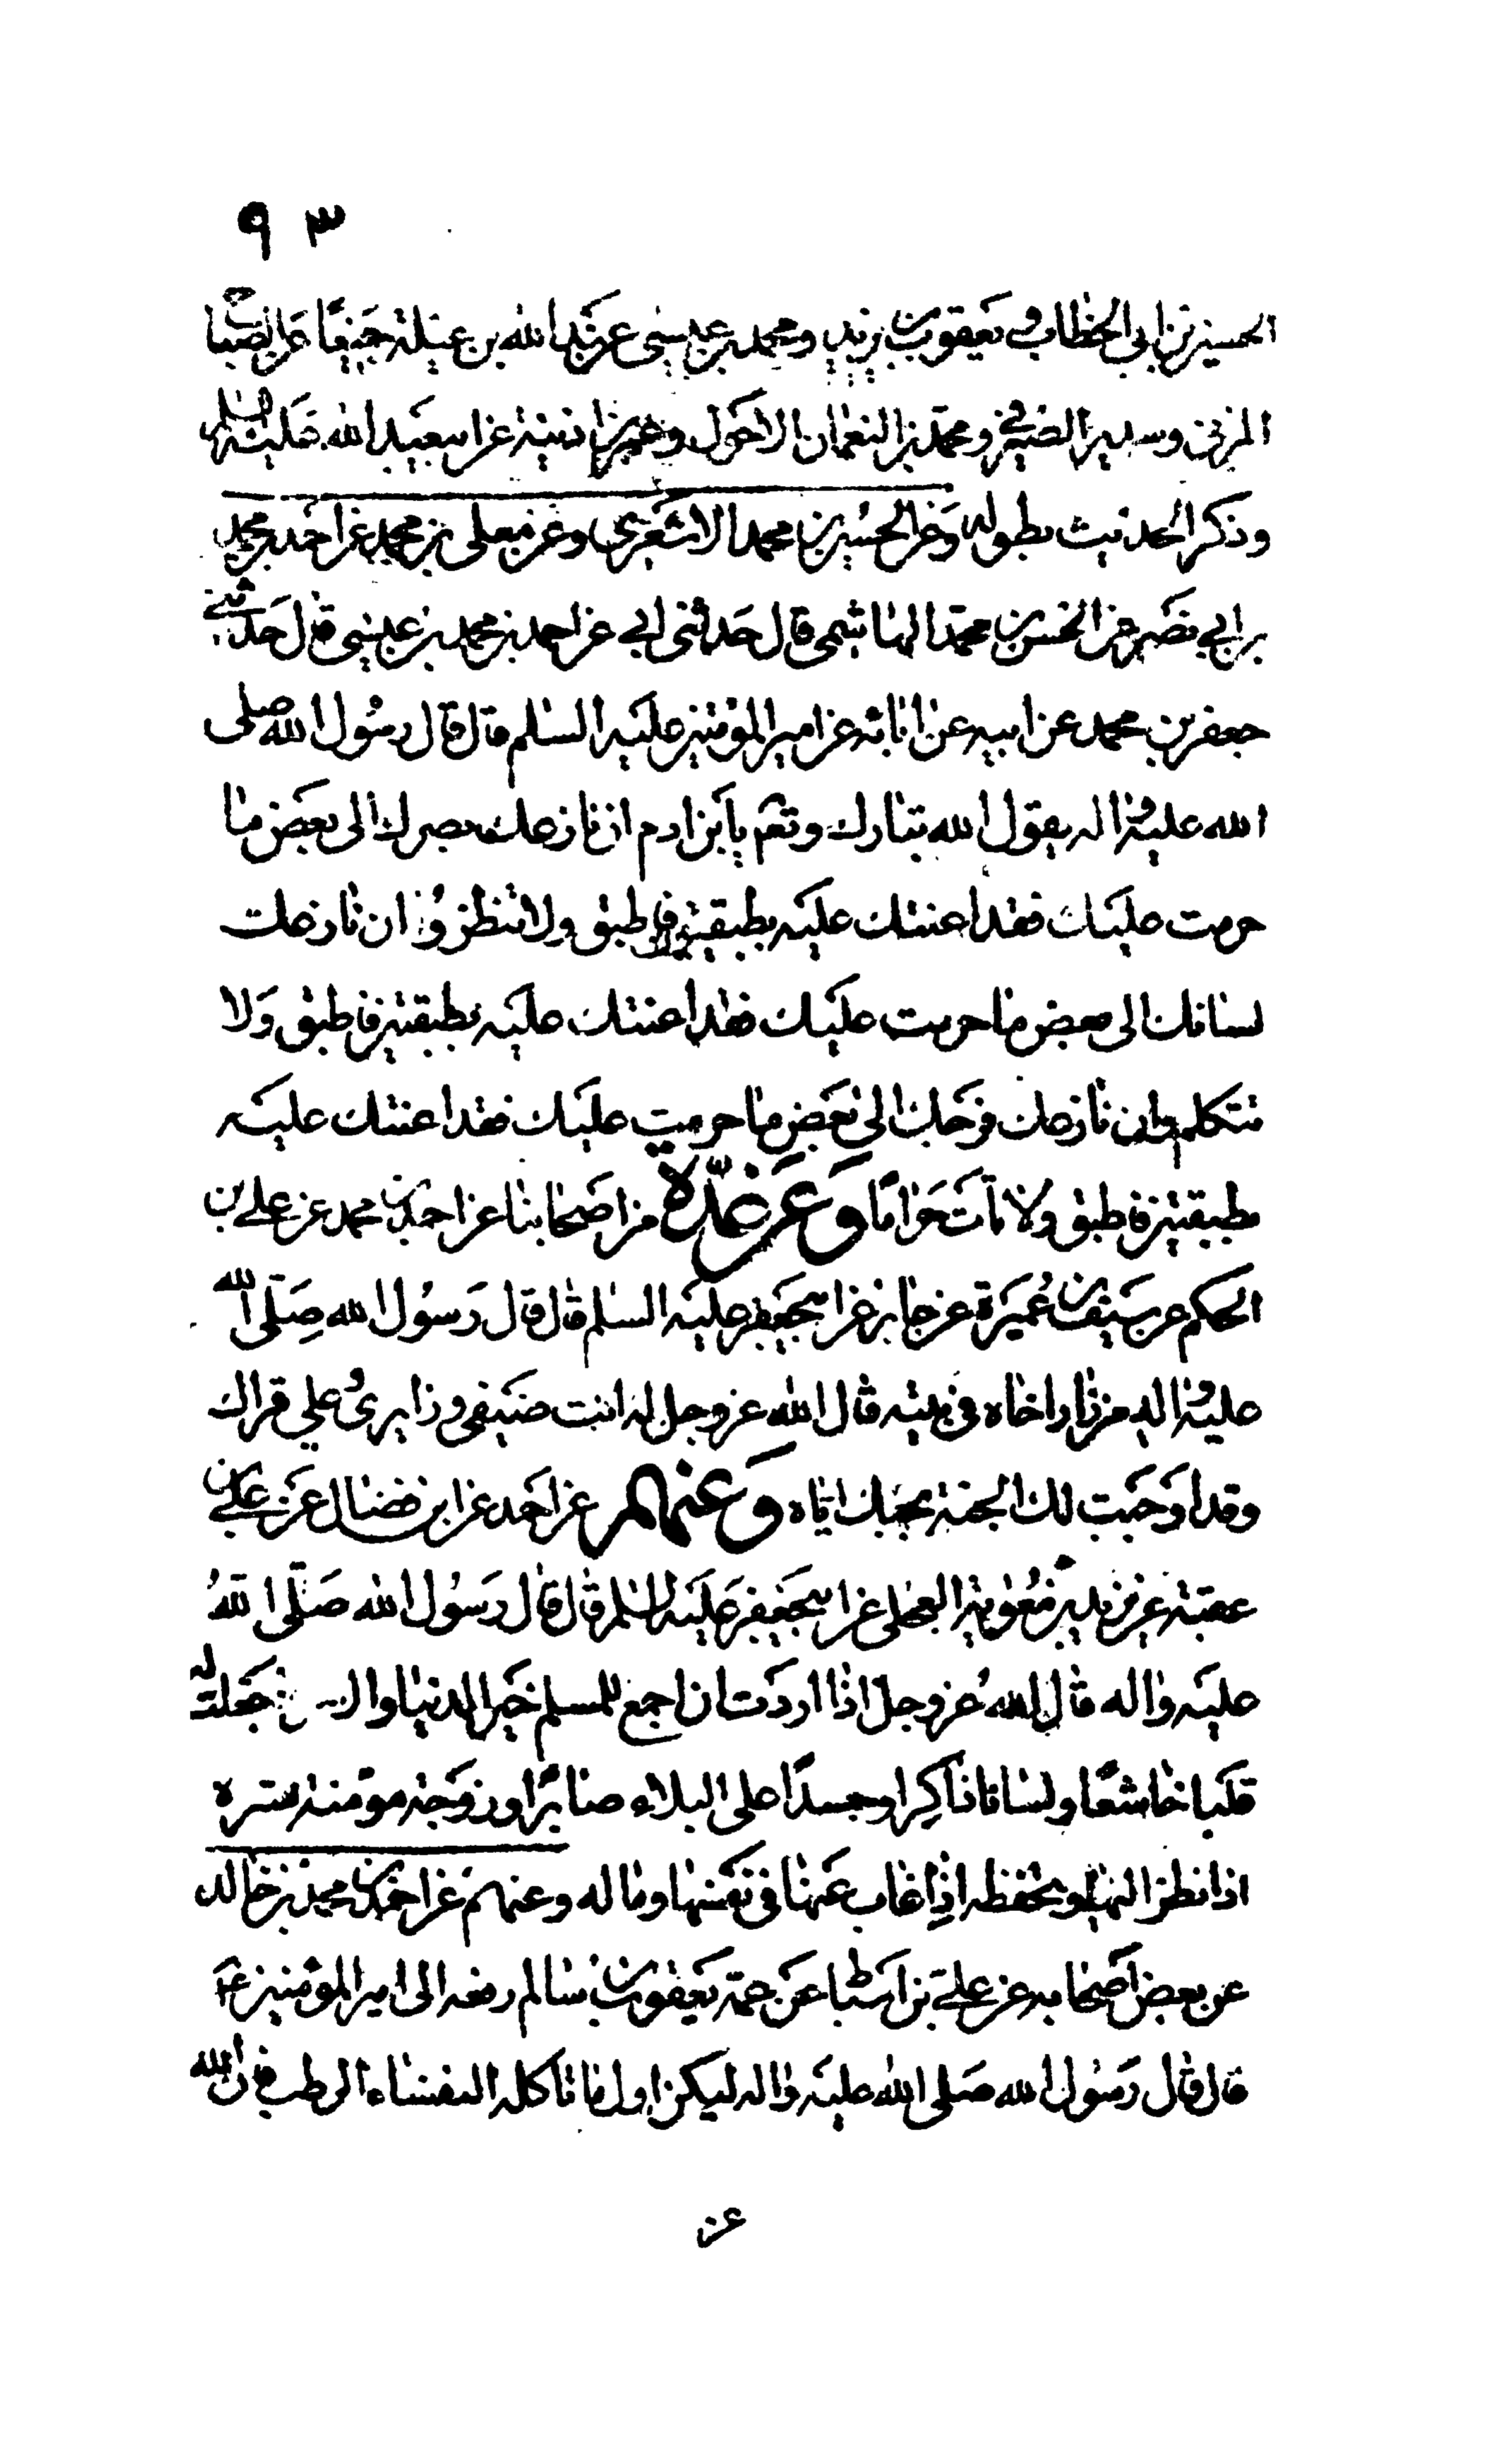 ٩٣
الحسين بن ابي الخطاب و يعقوب بن يزيد و محمد بن عيسى عن عبد الله بن جبلة جميعا عن الصباح
المزني و سدير الصيرفي و محمد بن النعمان الاحول و عمر بن اذينة عن ابيعبد الله عليه السلم
و ذكر الحديث بطوله و عن الحسين بن محمد الاشعري و عن معلى بن محمد عن احمد بن محمد
بن ابي نصر عن الحسن بن محمد الهاشمى قال حدثنى ابي عن احمد بن محمد بن عيسى قال حدثني
جعفر بن محمد عن ابيه عن ابائه عن امير المؤمنين عليه السلم قال قال رسول الله صلى
الله عليه و اله يقول الله تبارك و تعم يابن ادم ان نازعك بصرك الى بعض ما
حرمت عليك فقد اعنتك عليه بطبقتين فاطبق ولا تنظر و ان نازعك
لسانك الى بعض ما حرمت عليك فقد اعنتك عليه بطبقتين فاطبق وَلا
تتكلم وان نازعك فرجك الى بعض ما حرمت عليك فقد اعنتك عليه
بطبقتين فاطبق ولا تأت حراما وَعَن عِدّة من اصحابنا عن احمد بن محمد عن علي بن
الحكم عن سيف بن عُميرة عن جابر عن ابيجعفر عليه السلم قال قال رَسوُل الله صَلّى الله
عليه و اله من زار اخاه في بيته قال الله عز وجل له انت ضيفى و زايرى علي قراك
وقد اوَجبت لك الجنة بحبك اياه وَعنهم عن احمد عن ابن فضال عن علي بن
عقبة عن بريد بن معوية العجلى عن ابيجعفر عليه السلم قال قال رَسُول الله صَلّى اللهُ
عليه و اله قال الله عز وجل اذا اردت ان اجمع للمسلم خير الدنيا وال جعلت له
قلبا خاشعًا و لسانا ذاكِرا و جسدًا على البلاء صابرًا و زوجة مؤمنة تسره
اذا نظر اليها و تحفظه اذا غاب عنها فى نفسها و ماله و عنهم عن احمد بن محمد بن خالد
عن بعض اصحابه عن علي بن اسباط عن عمه يعقوب بن سالم رفعه الى امير المؤمنين ع
قال قال رَسُول الله صَلى الله عليه و اله ليكن اول ما تاكله النفساء الرطب فان الله
عز